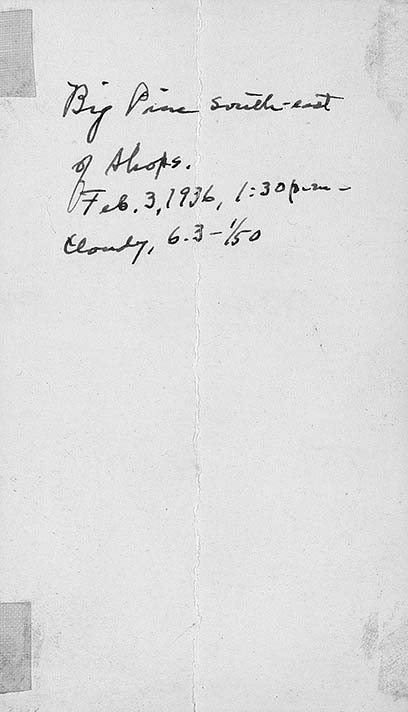 Big Pine south-east
of Shops.
Feb. 3, 1936, 1:30 p.m. -
Cloudy, 6.3 - 1/50